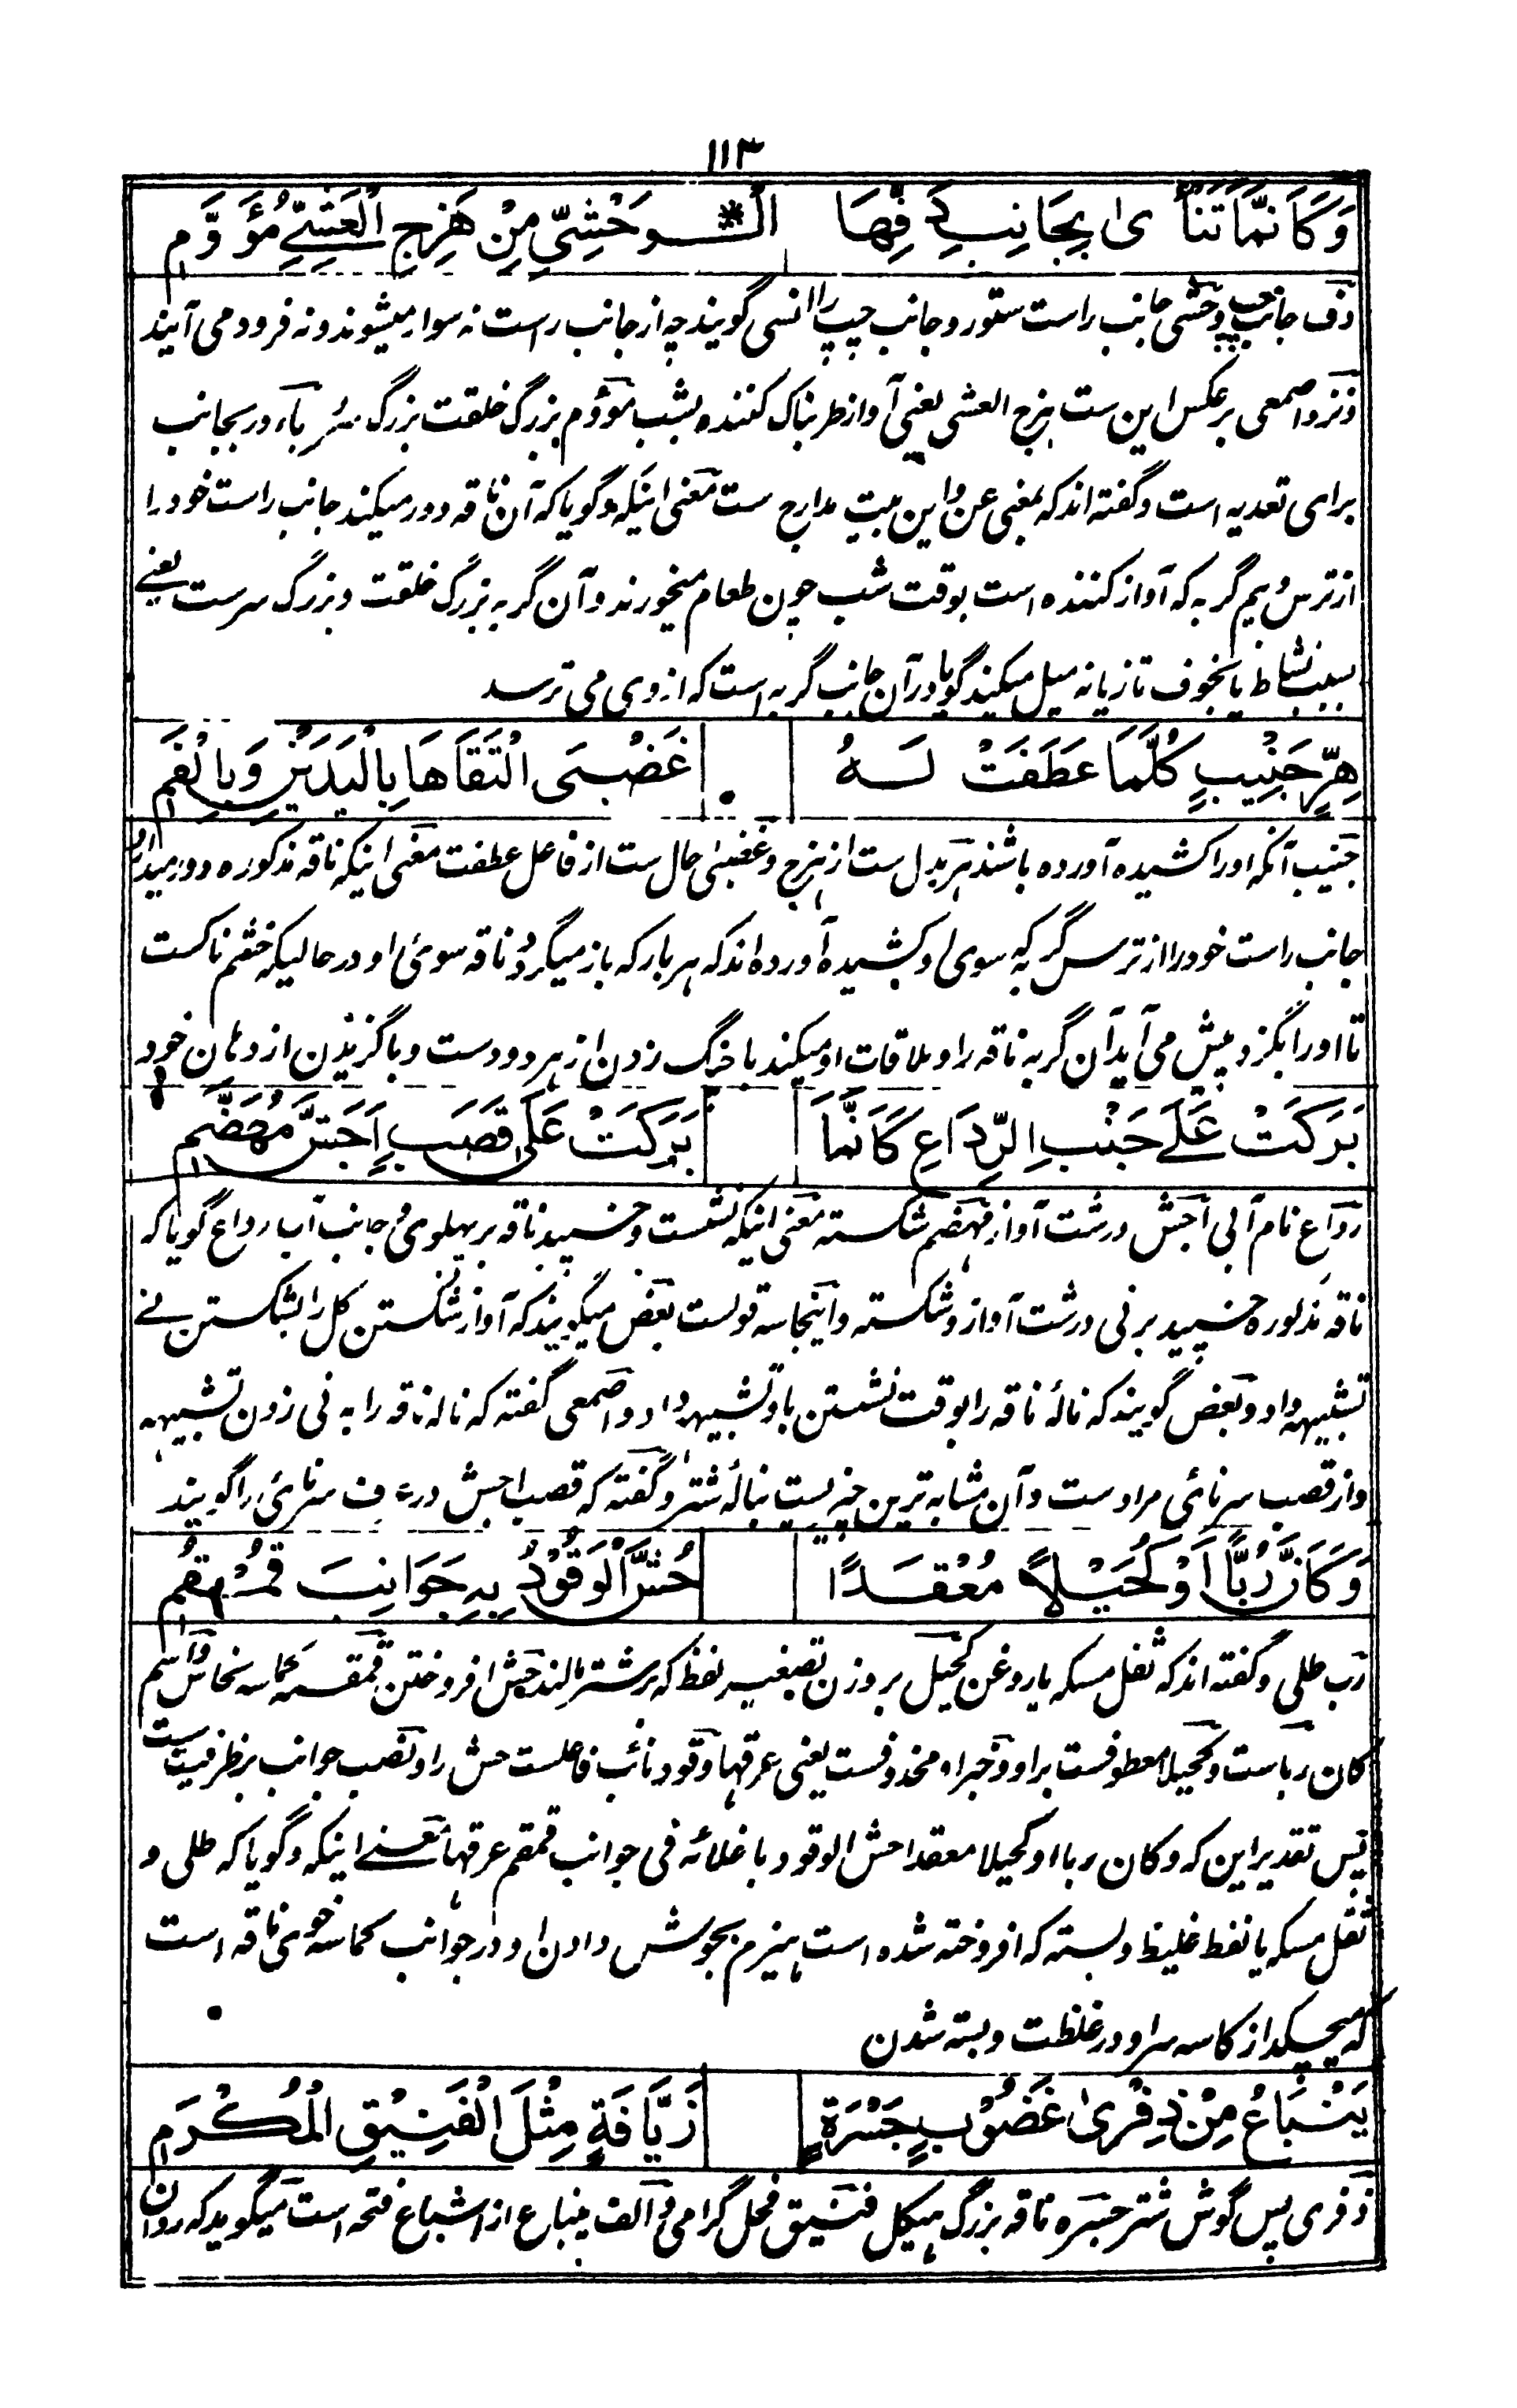 ١١٣
وَكَاَنَّمَا تَنْاٰى بِجَانِبِ دَفِّهَا الْوَحْشِیِّ مِنْ هَزِجِ الْعَشِیِّ مُؤَوَّمِ
دف جانب وحشی جانب راست ستور و جانب چپ را انسی گویند چه از جانب راست نه سوار میشوند و نه فرود می آیند
و نزد اصمعی برعکس این ست هزج العشی یعنی آواز طربناک کننده بشب مؤوم بزرگ خلقت بزرگ سر باء در بجانب
برای تعدیه است و گفته اند که بمعنی عن و این بیت مدارج ست معنی اینکه و گویا که آن ناقه دور میکند جانب راست خود را
از ترس و بیم گربه که آواز کننده است بوقت شب چون طعام میخورند و آن گربه بزرگ خلقت و بزرگ سرست یعنے
بسبب نشاط یا بخوف تازیانه میل میکند گویا در آن جانب گربه است که از وی می ترسد
هِرٍّ جَنِیْبٍ كُلَّمَا عَطَفَتْ لَهُ غَضْبٰی اتَّقَاهَا بِالْیَدَیْنِ وَبِالْفَمِ
جنیب آنکه او را کشیده آورده باشند هر بدل ست از هزج و غضبیٰ حال ست از فاعل عطفت معنی اینکه ناقه مذکوره دور میدارد
جانب راست خود را از ترس گربه که سوی او کشیده آورده اند که هر بار که باز میگردد ناقه سوئ او در حالیکه خشم ناکست
تا او را بگزد پیش می آید آن گربه ناقه را و ملاقات او میکند با خرگ زدن از هر دو دست و با گزیدن از دهان خود
بَرَكَتْ عَلٰے جَنْبِ الرِّدَاعِ كَاَنَّمَا بَرَكَتْ عَلٰی قَصَبٍ اَجَشَّ مُهَضَّمِ
رداع نام آبی اجش درشت آواز مهضم شکسته معنی اینکه نشست و خسپید ناقه بر پهلوی و جانب آب رداع گویا که
ناقه مذکوره خسپید بر نی درشت آواز و شکسته و اینجا سه قولست بعض میگویند که آواز شکستن گل را بشکستن نے
تشبیهه داد و بعض گویند که نالۂ ناقه را بوقت نشستن باو تشبیهه داد و اصمعی گفته که ناله ناقه را به نی زدن تشبیهه
و از قصب سرنائی مرادست و آن مشابه ترین چیزیست بنالۂ شتر و گفته که قصب اجش در عرف سرنائ را گویند
وَكَاَنَّ رُبًّا اَوْ كُحَیْلًا مُعْقَدًا حُشَّ الْوَقُوْدُ بِهٖ جَوَانِبَ قُمْقُمِ
رب طلی و گفته اند که ثفل مسکه یا روغن کحیل بر وزن تصغیر نفط که بر شتر مالند حش افروختن قمقمه کماسه نحاس و اسم
کان رباست و کحیلا معطوفست براو و خبر او محذوفست یعنی عرقها وقود نائب فاعلست حش را و نصب جوانب بر ظرفیت است
پس تقدیر این که و کان ربا او کحیلا معقدا حش الوقود باغلائه فی جوانب قمقم عرقها معنے اینکه و گویا که طلی و
ثفل مسکه یا نفط غلیظ و بسته که افروخته شده است هیزم بجوش دادن او در جوانب کماسه خوی ناقه است
که میچکد از کاسه سر او در غلظت و بسته شدن
یَنْبَاعُ مِنْ ذِفْرٰی غَضُوْبٍ جَسْرَةٍ زَیَّافَةٍ مِثْلَ الْفَنِیْقِ الْمُكْرَمِ
ذفری پس گوش شتر جسره ناقه بزرگ هیکل فنیق فحل گرامی و الف ینباع از اشباع فتحه است میگوید که روان